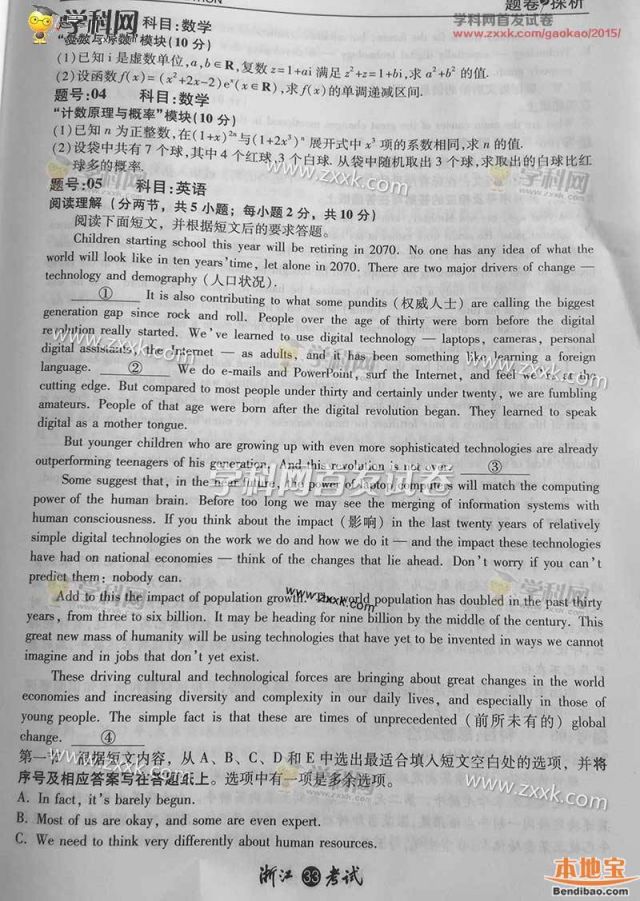 题卷 探析
学科网首发试卷
www.zxxk.com/gaokao/2015/
学科网
科目:数学
“复数与导数”模块(10 分)
(1)已知 i 是虚数单位,a,b∈R,复数 z=1+ai 满足 z²+z=1+bi,求 a²+b² 的值.
(2)设函数 f(x)=(x²+2x-2)eˣ(x∈R),求 f(x)的单调递减区间.
题号:04 科目:数学
“计数原理与概率”模块(10 分)
(1)已知 n 为正整数,在(1+x)²ⁿ与(1+2x³)ⁿ 展开式中 x³ 项的系数相同,求 n 的值.
(2)设袋中共有 7 个球,其中 4 个红球,3 个白球. 从袋中随机取出 3 个球,求取出的白球比红
球多的概率.
www.zxxk.com
学科网
题号:05 科目:英语
阅读理解（分两节，共 5 小题；每小题 2 分，共 10 分）
阅读下面短文，并根据短文后的要求答题。
Children starting school this year will be retiring in 2070. No one has any idea of what the
world will look like in ten years’time, let alone in 2070. There are two major drivers of change —
technology and demography（人口状况）.
① It is also contributing to what some pundits（权威人士）are calling the biggest
generation gap since rock and roll. People over the age of thirty were born before the digital
revolution really started. We’ve learned to use digital technology — laptops, cameras, personal
digital assistants, the Internet — as adults, and it has been something like learning a foreign
language. ② We do e-mails and PowerPoint, surf the Internet, and feel we’re at the
cutting edge. But compared to most people under thirty and certainly under twenty, we are fumbling
amateurs. People of that age were born after the digital revolution began. They learned to speak
digital as a mother tongue.
www.zxxk.com
学科网
www.zxxk.com
But younger children who are growing up with even more sophisticated technologies are already
outperforming teenagers of his generation. And this revolution is not over. ③
学科网首发试卷
Some suggest that, in the near future, the power of laptop computers will match the computing
power of the human brain. Before too long we may see the merging of information systems with
human consciousness. If you think about the impact（影响）in the last twenty years of relatively
simple digital technologies on the work we do and how we do it — and the impact these technologies
have had on national economies — think of the changes that lie ahead. Don’t worry if you can’t
predict them: nobody can.
学科网
www.zxxk.com
学科网
Add to this the impact of population growth. The world population has doubled in the past thirty
years, from three to six billion. It may be heading for nine billion by the middle of the century. This
great new mass of humanity will be using technologies that have yet to be invented in ways we cannot
imagine and in jobs that don’t yet exist.
These driving cultural and technological forces are bringing about great changes in the world
economies and increasing diversity and complexity in our daily lives, and especially in those of
young people. The simple fact is that these are times of unprecedented（前所未有的）global
change. ④
学科网
第一节 根据短文内容，从 A、B、C、D 和 E 中选出最适合填入短文空白处的选项，并将
序号及相应答案写在答题纸上。选项中有一项是多余选项。
www.zxxk.com
www.zxxk.com
A. In fact, it’s barely begun.
B. Most of us are okay, and some are even expert.
C. We need to think very differently about human resources.
浙江 33 考试
本地宝
Bendibao.com